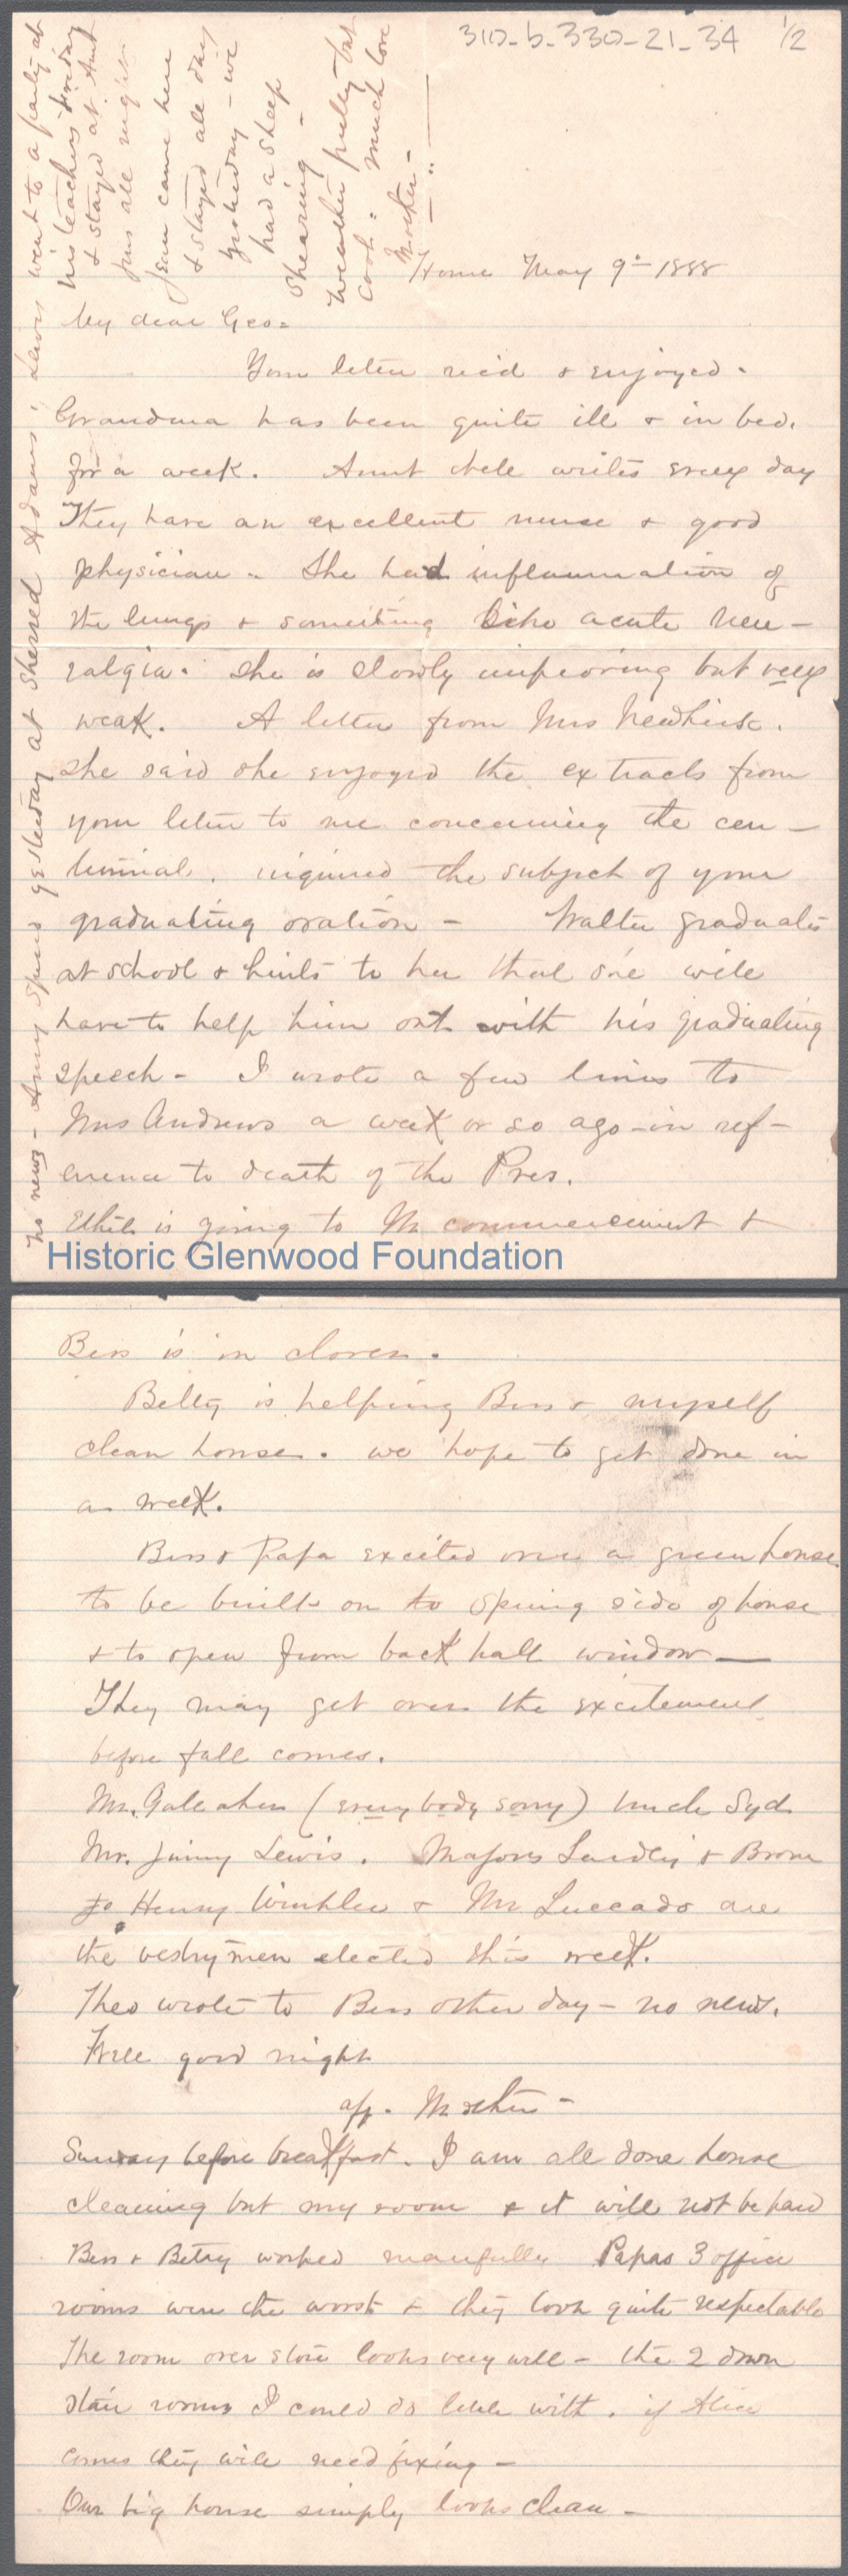 310-b-330-21-34 1/2
Home May 9th 1888
My dear Geo=
Your letter rec'd & enjoyed.
Grandma has been quite ill & in bed
for a week. Aunt writes every day
They have an excellent nurse & good
physician. She had inflammation of
the lungs & something like acute neu-
ralgia. She is slowly improving but very
weak. A letter from Mrs Newkirk.
She said she enjoyed the extracts from
your letter to me concerning the cen-
tennial. inquired the subject of your
graduating oration - Walter graduates
at school & hints to her that she will
have to help him out with his graduating
speech - I wrote a few lines to
Mrs Andrews a week or so ago - in ref-
erence to death of the Pres.
Ethel is going to commencement &
Bess is in clover.
Betty is helping Bess & myself
clean house. we hope to get done in
a week.
Bess & Papa excited over a green house
to be built on to Spring side of house
& to open from back hall window —
They may get over the excitement
before fall comes.
Mr. (every body sorry) Uncle Syd
Mr. Jimmy Lewis. Majors & Brown
Henry Winkler & Mr Luccado are
the vestrymen elected this week.
Theo wrote to Bess other day - no news.
Well good night
aff. Mother -
Sunday before breakfast. I am all done house
cleaning but my room & it will not be hard
Bess & Betsy worked manfully Papas 3 office
rooms were the worst & they look quite respectable
The room over store looks very well - the 2 down
stair rooms I could do little with. if Alice
comes they will need fixing -
Our big house simply looks clean -
no news - Amy Spent yesterday at Sherred Adams' Lewis went to a party at
his teachers Friday
& stayed at Aunt
all night
came here
& stayed all day
yesterday - we
had a sheep
shearing -
weather pretty but
cool = much love
Mother -
Historic Glenwood Foundation